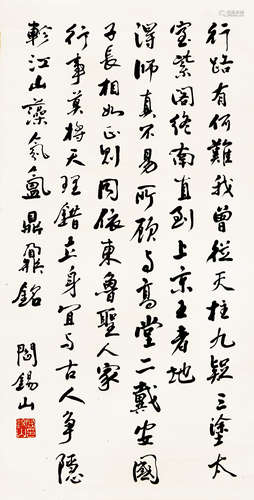 行路有何難我曾從天柱九疑三塗太
室紫閣終南直到上京王者地
得師真不易所願與高堂二戴安國
子長相如正則同依東魯聖人家
行事莫將天理錯立身宜與古人爭隱
軫江山藻氣氳鼎鼐銘
閻錫山